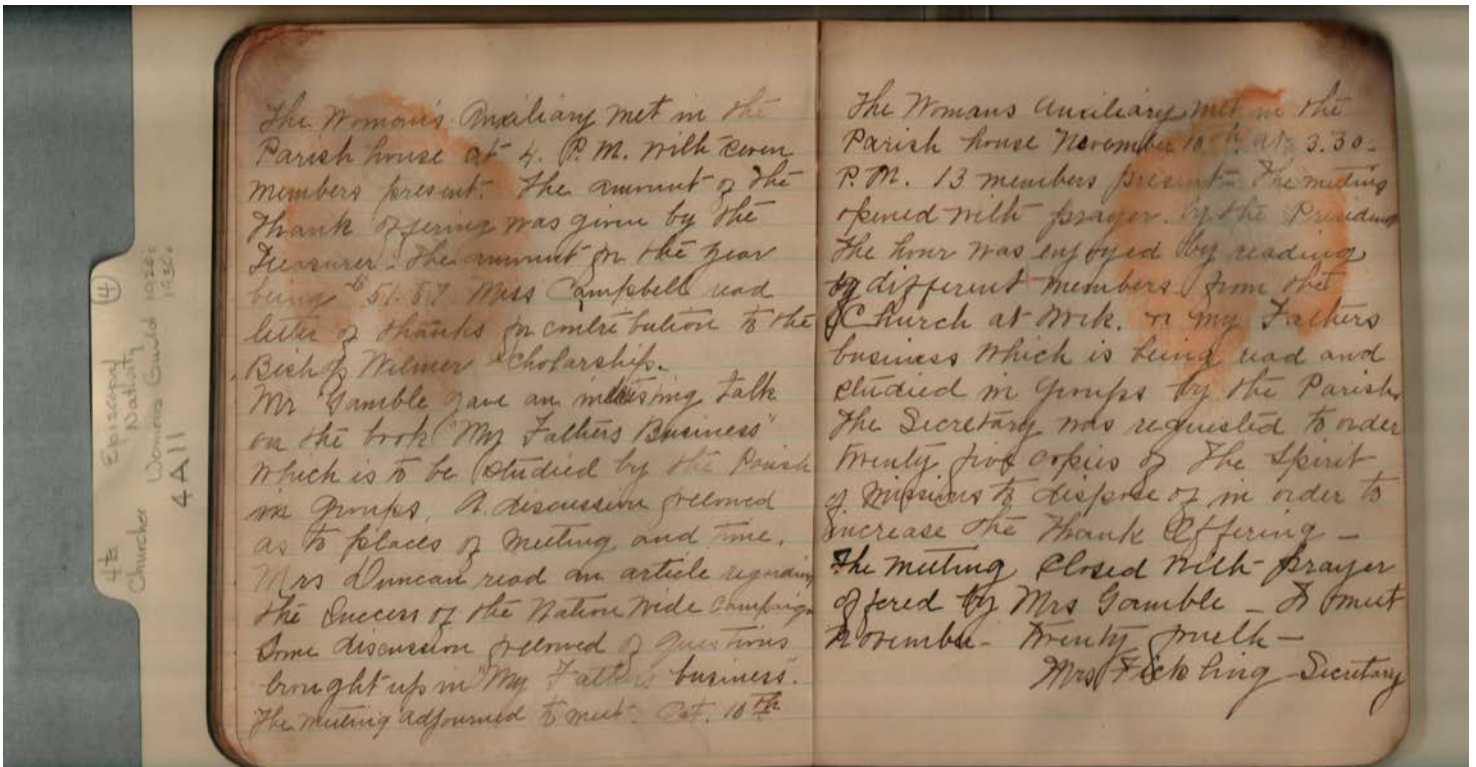 4B Episcopal ④
Church Nativity
Womans Guild 1920s
1930s
4A11
The Woman's Auxiliary met in the
Parish house at 4. P.M. with seven
members present. The amount of the
Thank offering was given by the
Treasurer - The amount for the year
being $51.57 Miss Campbell read
letter of thanks for contribution to the
Bishop Wilmer Scholarship.
Mr Gamble gave an interesting talk
on the book "My Fathers Business"
which is to be studied by the Parish
in groups. A discussion followed
as to places of meeting and time.
Mrs Duncan read an article regarding
the success of the Nation Wide Campaign
Some discussion followed of questions
brought up in "My Fathers business".
The meeting adjourned to meet - Oct. 10th
The Womans Auxiliary met in the
Parish house November 10th at 3.30-
P.M. 13 members present - The meeting
opened with prayer. by the President
The hour was enjoyed by reading
by different members from the
"Church at Work. or My Fathers
business which is being read and
studied in groups by the Parish.
The Secretary was requested to order
twenty five copies of The Spirit
of Missions to dispose of in order to
increase the Thank Offering -
The meeting closed with prayer
offered by Mrs Gamble - To meet
November - twenty fourth -
Mrs Fickling Secretary